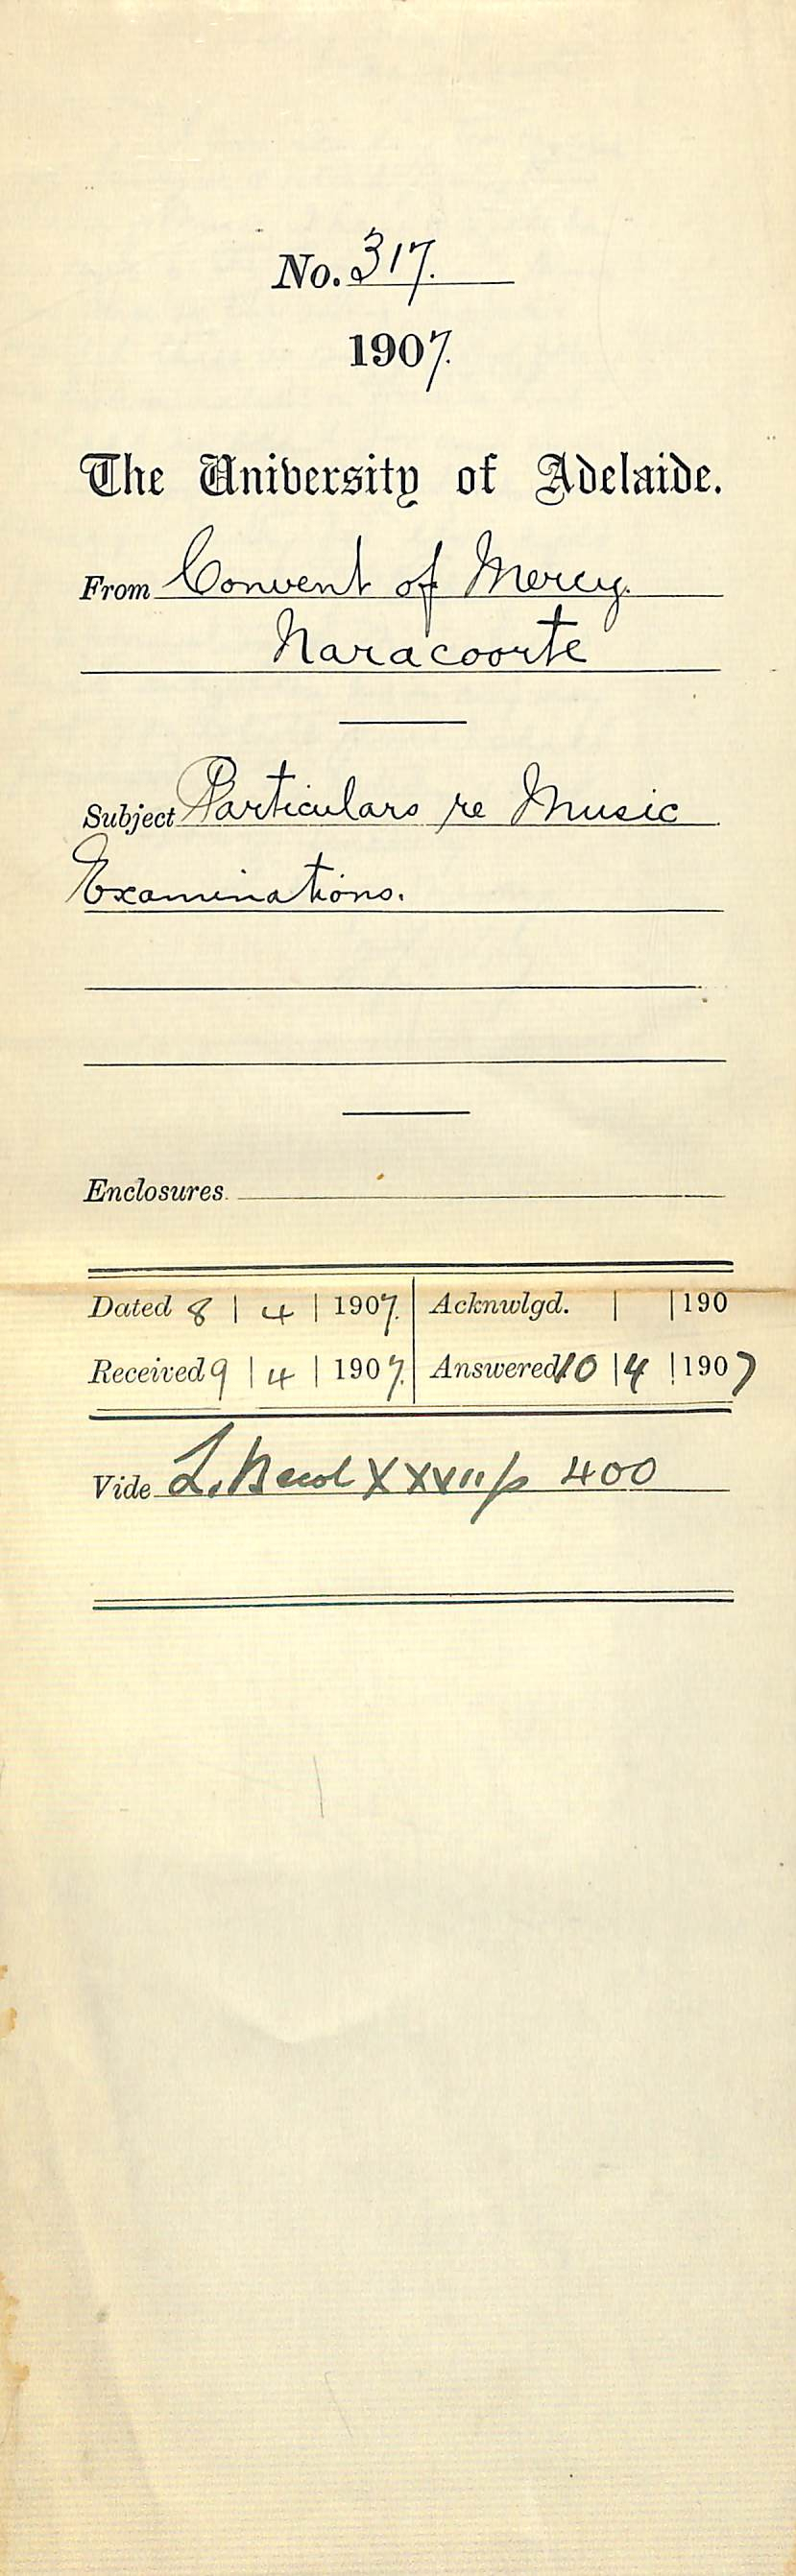 No. 317.
1907.
The University of Adelaide.
From Convent of Mercy.
Naracoorte
Subject Particulars re Music
Examinations.
Enclosures.
Dated 8 | 4 | 1907. Acknwlgd. | | 190
Received 9 | 4 | 1907. Answered 10 | 4 | 1907
Vide L. XXVII p 400